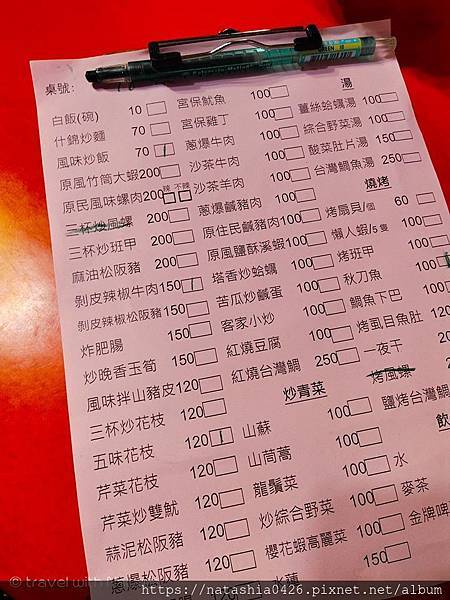 桌號:
白飯(碗) 10
什錦炒麵 70
風味炒飯 70
原風竹筒大蝦 200
原民風味螺肉 200 辣 不辣
三杯炒風螺 200
三杯炒班甲 200
麻油松阪豬 200
剝皮辣椒牛肉 150
剝皮辣椒松阪豬 150
炸肥腸 150
炒晚香玉筍 150
風味拌山豬皮 120
三杯炒花枝 120
五味花枝 120
芹菜花枝 120
芹菜炒雙魷 120
蒜泥松阪豬 120
蔥爆松阪豬 120
宮保魷魚 100
宮保雞丁 100
蔥爆牛肉 100
沙茶牛肉 100
沙茶羊肉 100
蔥爆鹹豬肉 100
原住民鹹豬肉 100
原風鹽酥溪蝦 100
塔香炒蛤蠣 100
苦瓜炒鹹蛋 100
客家小炒 150
紅燒豆腐 200
紅燒台灣鯛 250
炒青菜
山蘇 150
山茼蒿 100
龍鬚菜 100
炒綜合野菜 100
櫻花蝦高麗菜 100
水蓮 150
湯
薑絲蛤蠣湯 100
綜合野菜湯 100
酸菜肚片湯 150
台灣鯛魚湯 250
燒烤
烤扇貝/個 60
懶人蝦/5隻 100
烤班甲 100
秋刀魚 100
鯛魚下巴
烤虱目魚肚
一夜干
烤風螺
鹽烤台灣鯛
飲
水
麥茶
金牌啤
travel with
https://natashia0426.pixnet.net/album